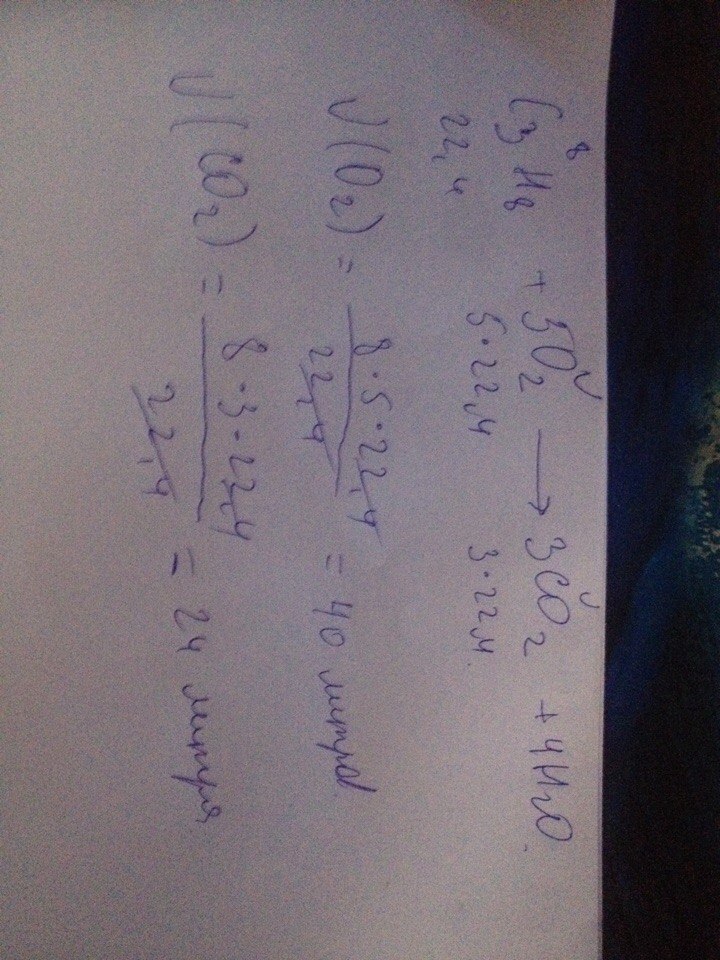 8 V V
C3H8 + 5O2 → 3CO2 + 4H2O.
22,4 5·22,4 3·22,4.
V(O2) = 8·5·22,4 / 22,4 = 40 литров
V(CO2) = 8·3·22,4 / 22,4 = 24 литра